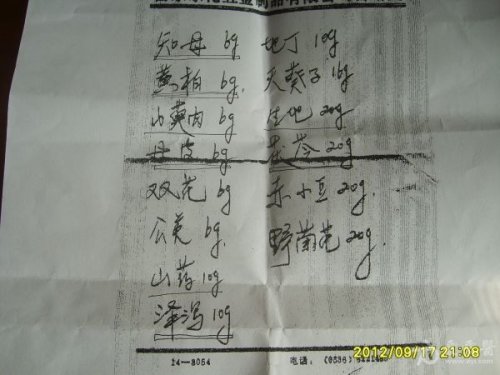 知母 6g 地丁 10g
黄柏 6g. 天葵子
山萸肉 6g 生地 20g
丹皮 6g 茯苓 20g
双花 6g 赤小豆 20g.
公英 6g. 野菊花 20g.
山药 10g
泽泻 10g
14-8054 电话：(0536)
2012/09/17 21:08